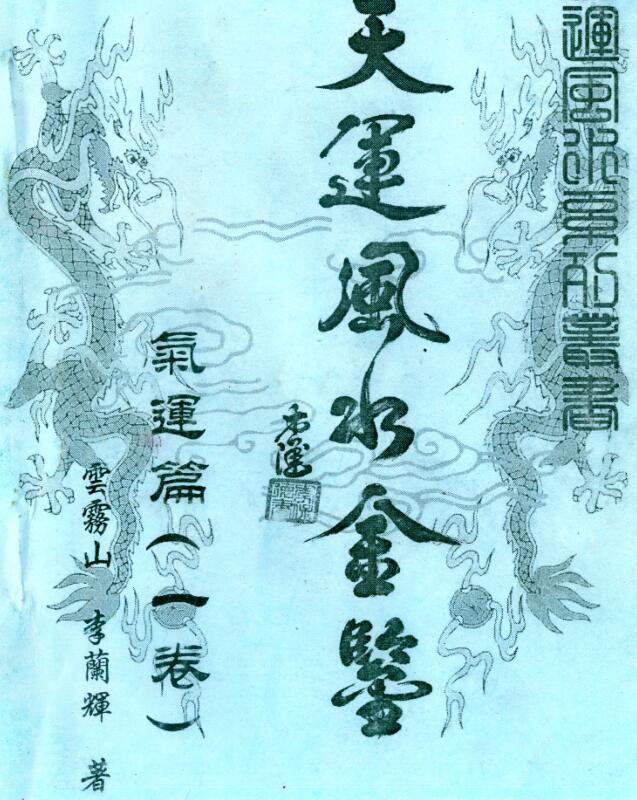 運風水叢書
天運風水金鑒
氣運篇（一卷）
雲霧山 李蘭輝 著